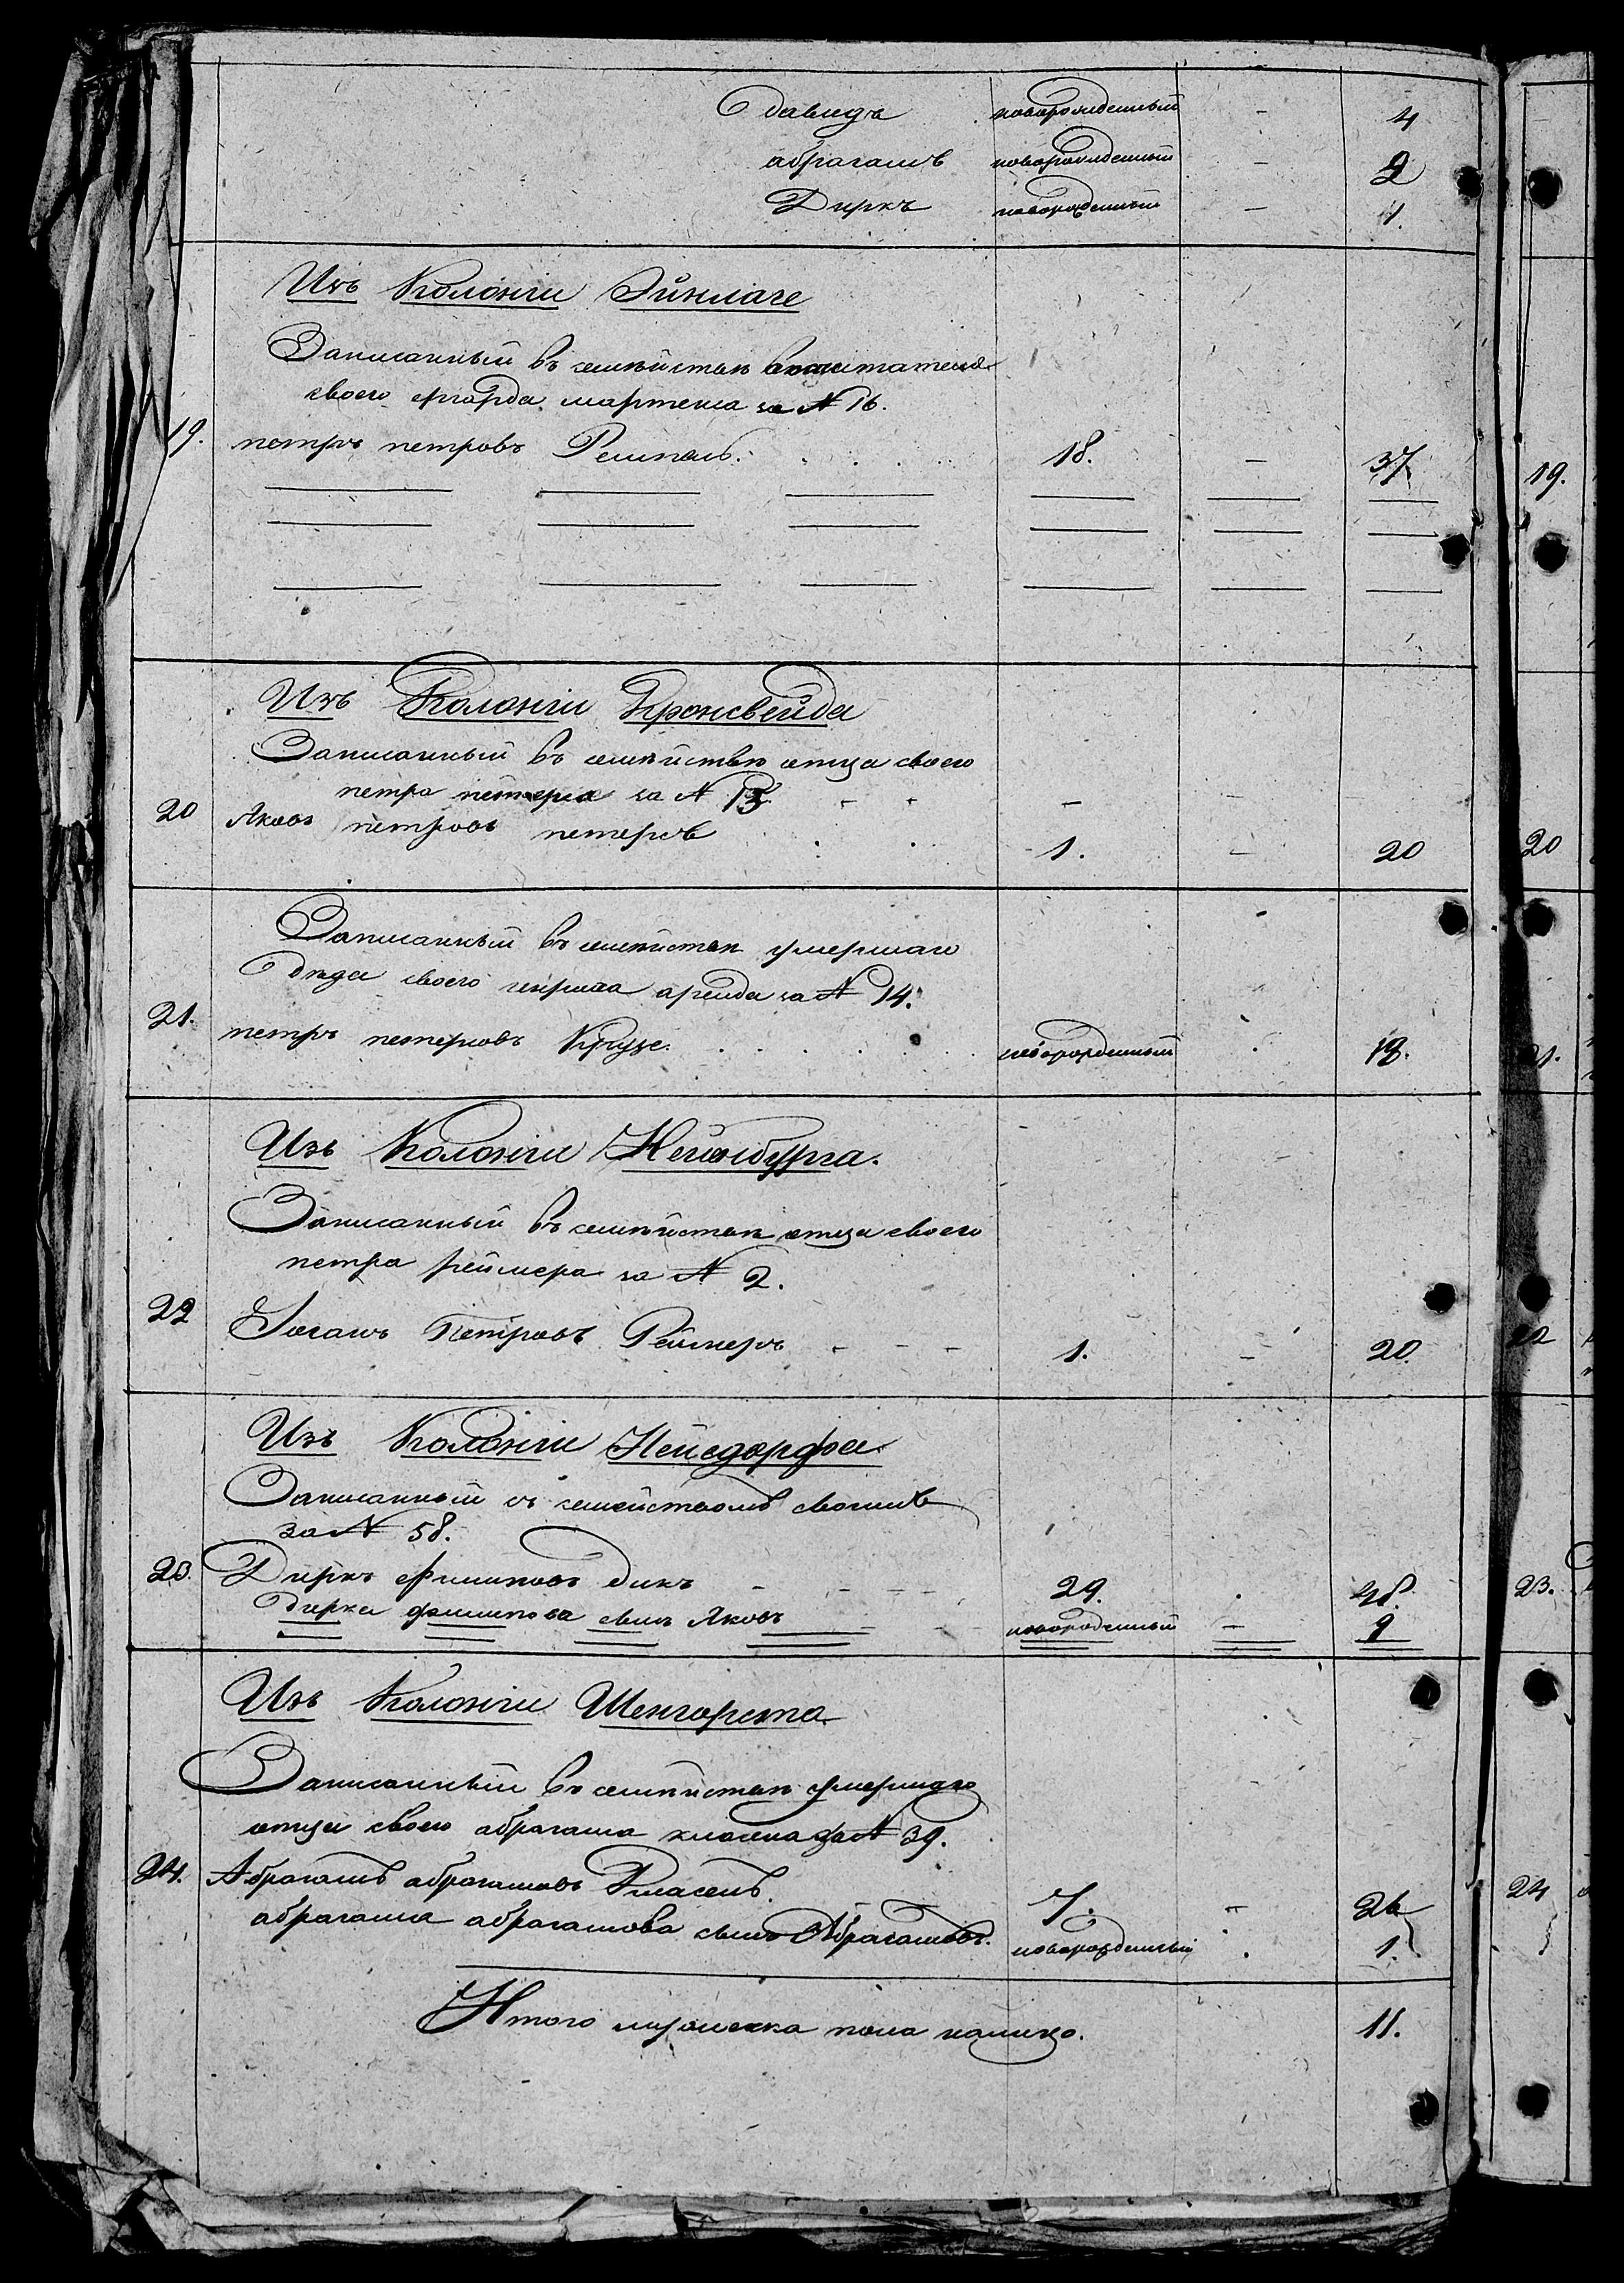 Давидъ новорожденный - 4
абрагамъ новорожденный - 2
Диркъ новорожденный - 1.
Изъ Колонiи Эйнлаге
Записанный въ семействѣ воспитателя
своего герарда мартенса за № 16.
19. петръ петровъ Ремпель. 18. - 37. 19.
Изъ Колонiи Кронсвейда
Записанный въ семействѣ отца своего
петра петерса за № 13. - -
20 Яковъ петровъ петерсъ 1. - 20 20
Записанный въ семействѣ умершаго
Дѣда своего аренда за № 14.
21. петръ петеровъ Крузе. новорожденный 19. 21.
Изъ Колонiи Нейенбурга.
Записанный въ семействѣ отца своего
петра реймера за № 2.
22 Iоганъ Петровъ Реймеръ - - - 1. - 20. 22
Изъ Колонiи Нейедорфа.
Записанный съ семействомъ своимъ
за № 58.
23. Диркъ Филиповъ дикъ 29. 48. 23.
Дирка филипова сынъ Яковъ новорожденный - 9
Изъ Колонiи Шенгорста
Записанный въ семействѣ умершаго
отца своего абрагама класена за № 39.
24. Абрагамъ абрагамовъ Класенъ. 7. - 26 24
абрагама абрагамова сынъ Абрагамъ. новорожденный 1.
Итого мужеска пола налицо. 11.